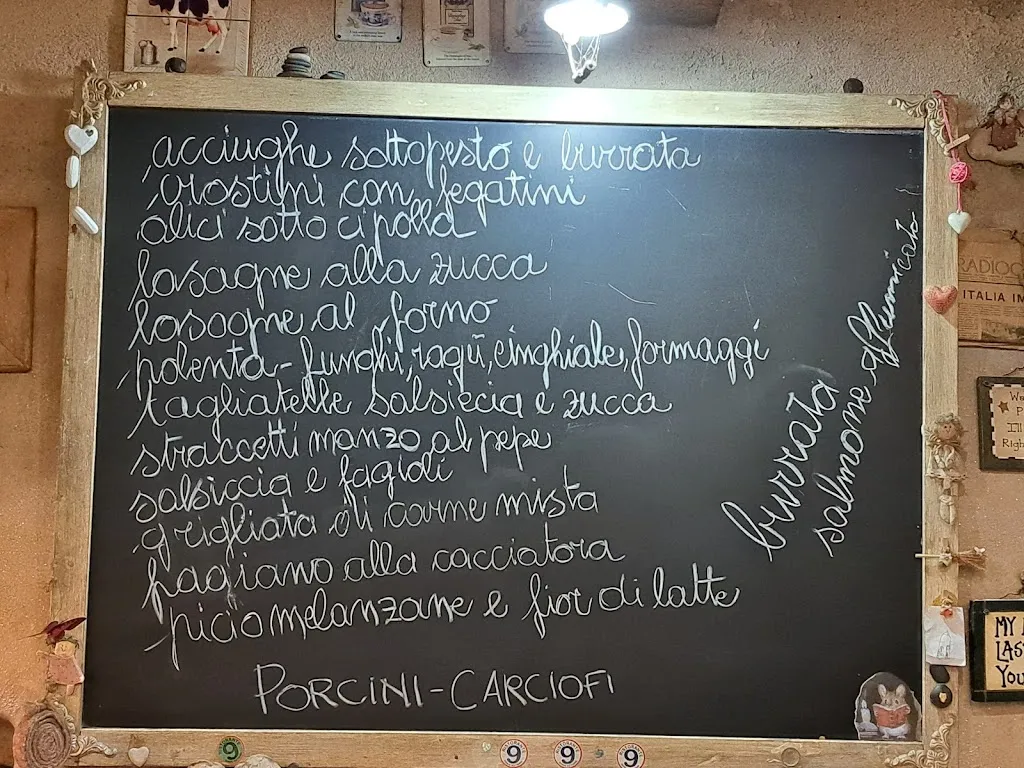 acciughe sottopesto e burrata
crostini con fegatini
alici sotto cipolla
lasagne alla zucca
lasagne al forno
polenta - funghi, ragù, cinghiale, formaggi
tagliatelle salsiccia e zucca
straccetti manzo al pepe
salsiccia e fagioli
grigliata di carne mista
fagiano alla cacciatora
picio melanzane e fior di latte
PORCINI - CARCIOFI
burrata
salmone affumicato
RADIOC
ITALIA IM
MY
LAS
YOU
9
9
9
9